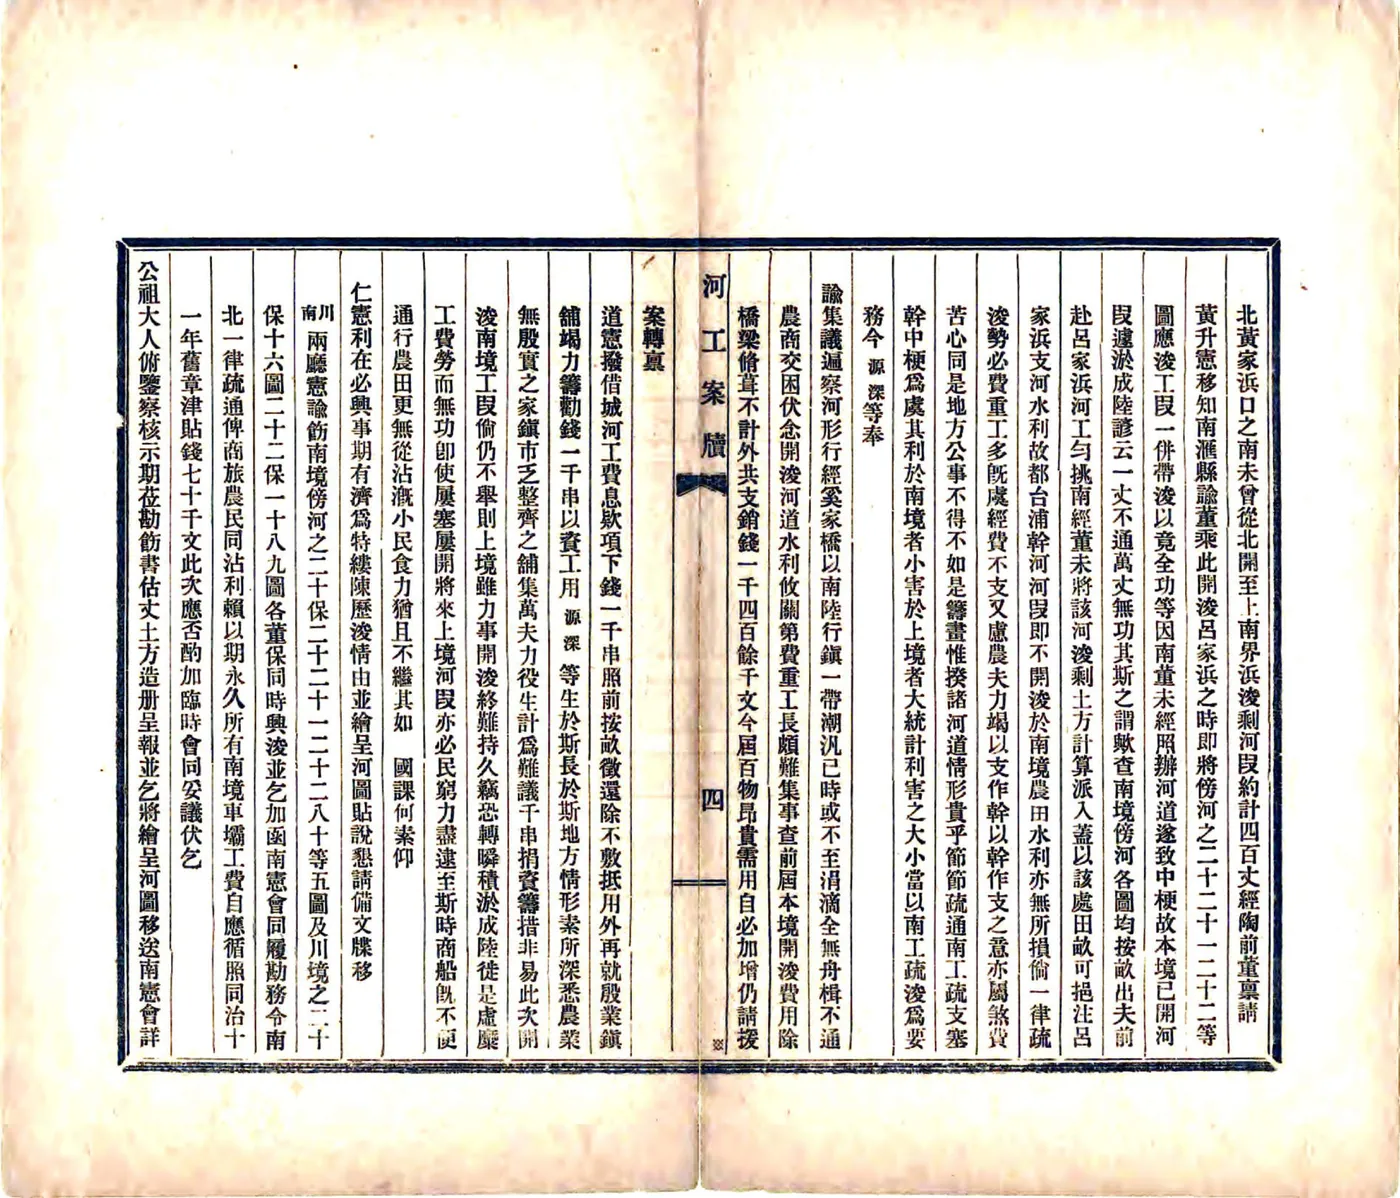 北黃家浜口之南未曾從北開至上南界浜浚剩河叚約計四百丈經陶前董禀請
黃升憲移知南滙縣諭董乘此開浚呂家浜之時即將傍河之二十二十一二十二等
圖應浚工叚一併帶浚以竟全功等因南董未經照辦河道遂致中梗故本境已開河
叚遽淤成陸諺云一丈不通萬丈無功其斯之謂歟查南境傍河各圖均按畝出夫前
赴呂家浜河工勻挑南經董未將該河浚剩土方計算派入蓋以該處田畝可挹注呂
家浜支河水利故都台浦幹河河叚即不開浚於南境農田水利亦無所損倘一律疏
浚勢必費重工多既處經費不支又慮農夫力竭以支作幹以幹作支之意亦屬煞費
苦心同是地方公事不得不如是籌畫惟揆諸河道情形貴乎節節疏通南工疏支塞
幹中梗爲虞其利於南境者小害於上境者大統計利害之大小當以南工疏浚爲要
務今源深等奉
諭集議遍察河形行經奚家橋以南陸行鎭一帶潮汎已時或不至涓滴全無舟楫不通
農商交困伏念開浚河道水利攸關第費重工長頗難集事查前屆本境開浚費用除
橋梁脩葺不計外共支銷錢一千四百餘千文今屆百物昂貴需用自必加增仍請援
河工案牘 四
案轉禀
道憲撥借城河工費息欵項下錢一千串照前按畝徵還除不敷抵用外再就殷業鎭
舖竭力籌勸錢一千串以資工用源深等生於斯長於斯地方情形素所深悉農業
無殷實之家鎭市乏整齊之舖集萬夫力役生計爲難議千串捐資籌措非易此次開
浚南境工叚倘仍不舉則上境雖力事開浚終難持久竊恐轉瞬積淤成陸徒是虛糜
工費勞而無功卽使屢塞屢開將來上境河叚亦必民窮力盡逮至斯時商船旣不便
通行農田更無從沾漑小民食力猶且不繼其如 國課何素仰
仁憲利在必興事期有濟爲特縷陳歷浚情由並繪呈河圖貼說懇請備文牒移
川南兩廳憲諭飭南境傍河之二十保二十二十一二十二八十等五圖及川境之二十
保十六圖二十二保一十八九圖各董保同時興浚並乞加函南憲會同履勘務令南
北一律疏通俾商旅農民同沾利賴以期永久所有南境車壩工費自應循照同治十
一年舊章津貼錢七十千文此次應否酌加臨時會同妥議伏乞
公祖大人俯鑒察核示期莅勘飭書估丈土方造册呈報並乞將繪呈河圖移送南憲會詳